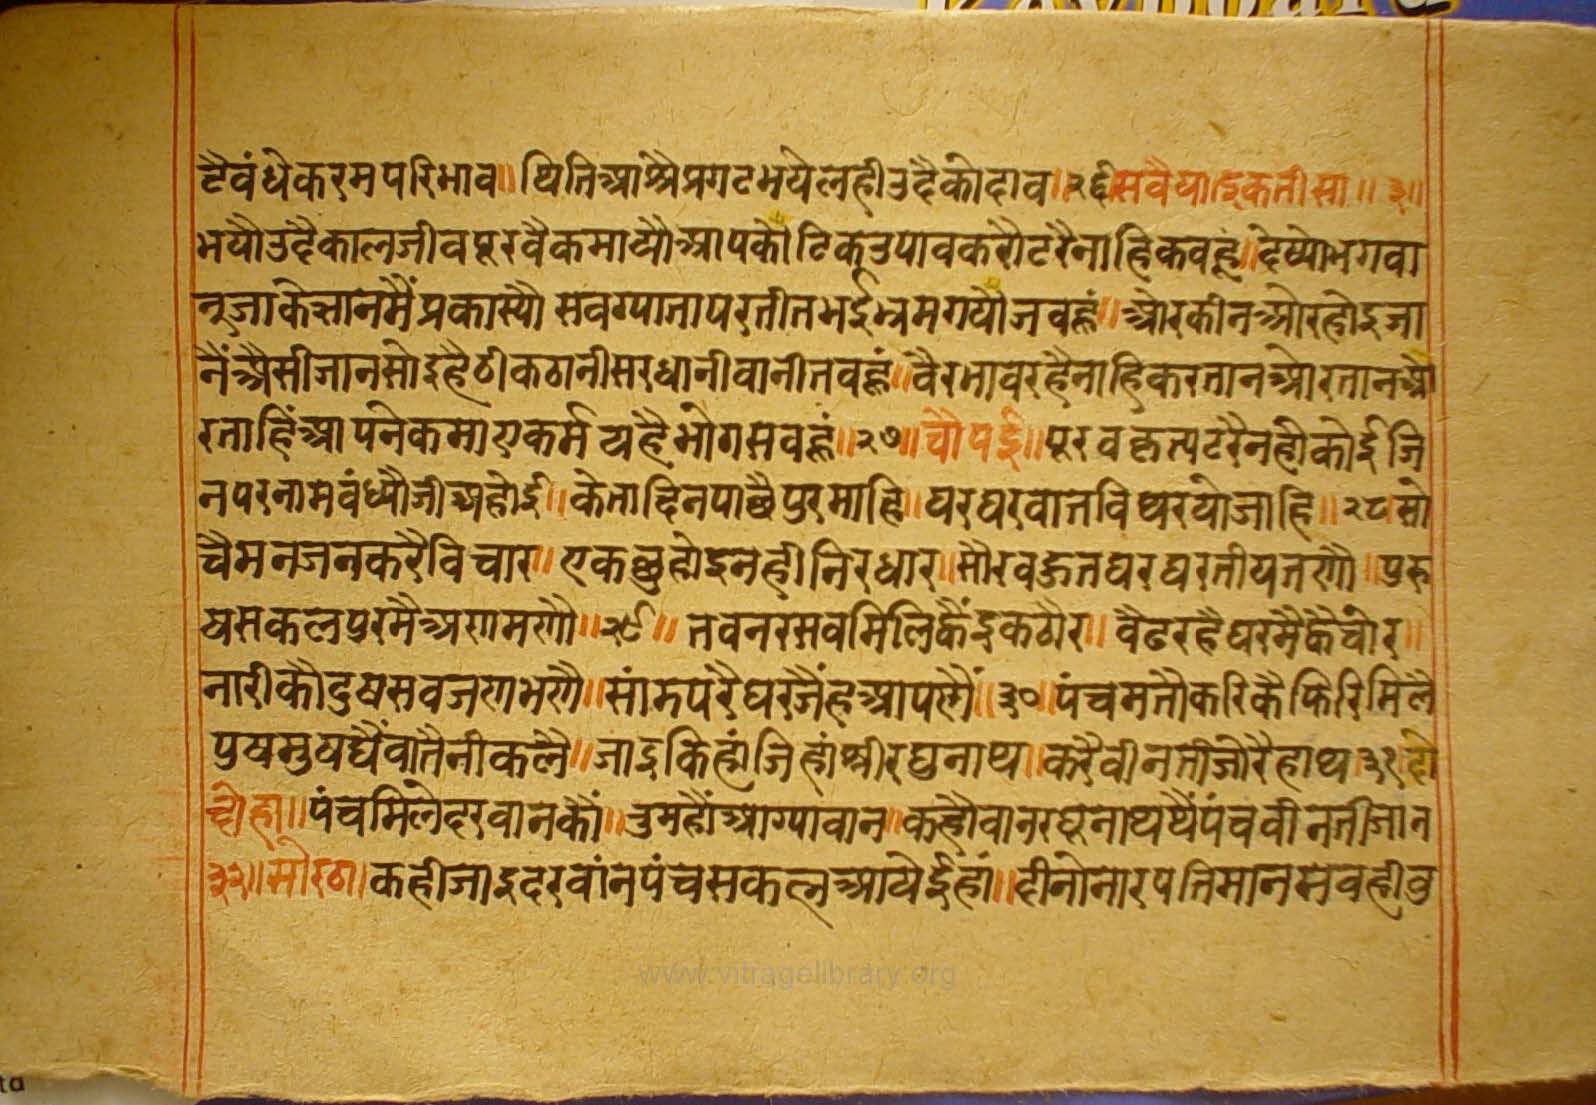 टैवंधेकरमपरिभाव॥ थितिआश्रैप्रगटभयेलहीउदैकोदाव॥२६॥सवैयाइकतीसा॥३॥
भयौउदैकालजीवपूरवैकमायौआपकोटिकउपावकरौटरैनाहिकवहूं॥देष्योभगवा
नजाकेज्ञानमैंप्रकास्यौ सवग्यातापरतीतभईभ्रमगयौजवहूं॥ओरकीनओरहोइजा
नैंअैसीजानसोइहैठीकठानीसरधानीवानीतवहूं॥वैरभावरहैनाहिकरतानओरतानओ
रताहिंआपनेकमाएकर्म यहैभोगसवहूं॥२७॥चौपई॥पूरवकृत्यटरैनहीकोईजि
नपरनामवंध्यौजीयहोई॥केतादिनपाछैपुरमाहि॥घरघरवातविथरयोजाहि॥२८सो
चैमनजनकरैविचार॥एकछुहोइनहीनिरधार॥सौरवहुतघरघरतीयतणौ॥पुरु
षसकलपुरमैअणमणौ॥२९॥ तवनरसवमिलिकैंइकठौर॥ वैठरहैघरमैकैचोर॥
नारीकौदुषसवजणभणै॥सांझपरैघरजैंहआपणैं॥३०॥पंचमतौकरिकैफिरिमिलै
पुषमुषथैंवातैनीकलै॥जाइकिहांजिहांश्रीरघुनाथ॥करैवीनतीजोरैहाथ३१दो
दोहा॥पंचमिलेदरवानकौं॥तुमहौंआग्यावान॥कहौवानरघूनाथथैंपंचवीनतीजान
३२॥सोरठा॥कहीजाइदरवांनपंचसकलआयेईहां॥दीनोनारपतिमानसवहीवु
www.vitragelibrary.org